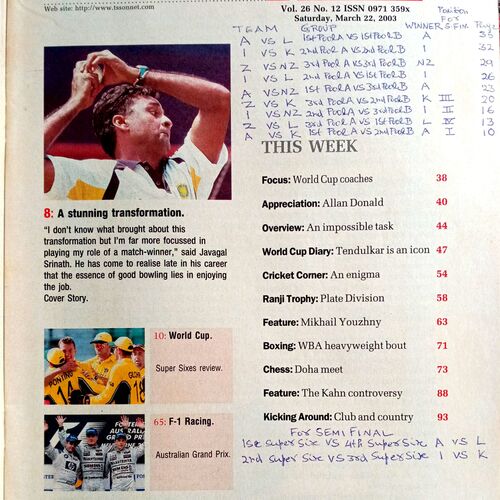 Web site: http://www.tssonnet.com
Vol. 26 No. 12 ISSN 0971 359x
Saturday, March 22, 2003
Position
FOR
TEAM GROUP WINNER S.FIN Page
A VS L 1st Pool A VS 1st Pool B A 35
I VS K 2nd Pool A VS 2nd Pool B I 32
Z VS NZ 3rd Pool A VS 3rd Pool B NZ 29
I VS L 2nd Pool A VS 1st Pool B I 26
A VS NZ 1st Pool A VS 3rd Pool B A 23
Z VS K 3rd Pool A VS 2nd Pool B K III 20
I VS NZ 2nd Pool A VS 3rd Pool B I II 16
Z VS L 3rd Pool A VS 1st Pool B L IV 13
A VS K 1st Pool A VS 2nd Pool B A I 10
THIS WEEK
Focus: World Cup coaches 38
Appreciation: Allan Donald 40
Overview: An impossible task 44
World Cup Diary: Tendulkar is an icon 47
Cricket Corner: An enigma 54
Ranji Trophy: Plate Division 58
Feature: Mikhail Youzhny 63
Boxing: WBA heavyweight bout 71
Chess: Doha meet 73
Feature: The Kahn controversy 88
Kicking Around: Club and country 93
For SEMI FINAL
1st Super Six VS 4th Super Six A VS L
2nd Super Six VS 3rd Super Six I VS K
8: A stunning transformation.
“I don't know what brought about this
transformation but I'm far more focussed in
playing my role of a match-winner,” said Javagal
Srinath. He has come to realise late in his career
that the essence of good bowling lies in enjoying
the job.
Cover Story.
10: World Cup.
Super Sixes review.
PONTING
14
18
65: F-1 Racing.
Australian Grand Prix.